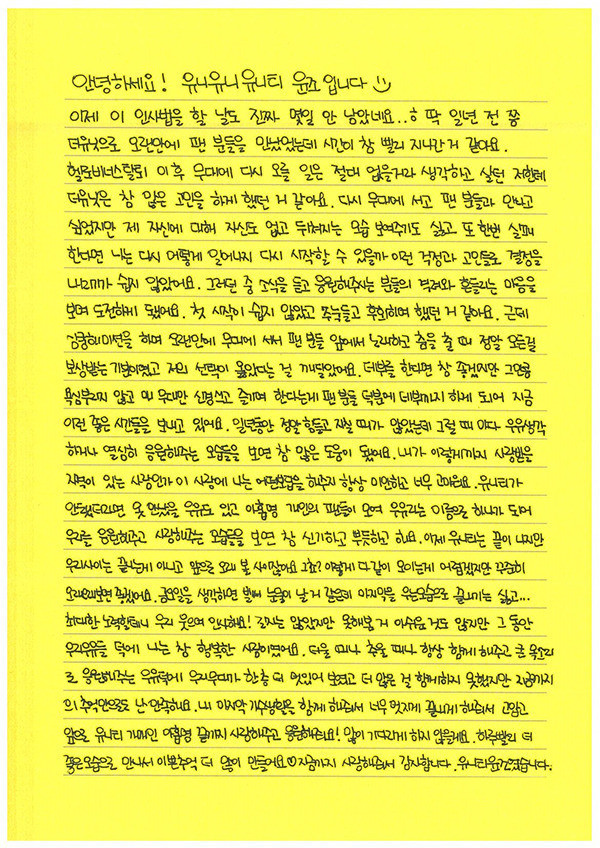 안녕하세요! 유니유니유니티 윤조입니다
이제 이 인사법을 할 날도 진짜 몇일 안 남았네요..ㅎ 딱 일년 전 쯤
더유닛으로 오랜만에 팬 분들을 만났었는데 시간이 참 빨리 지나간 거 같아요.
헬로비너스탈퇴 이후 무대에 다시 오를 일은 절대 없을거라 생각하고 살던 저한테
더유닛은 참 많은 고민을 하게 했던 거 같아요. 다시 무대에 서고 팬 분들과 만나고
싶었지만 제 자신에 대해 자신도 없고 뒤쳐지는 모습 보여주기도 싫고 또 한번 실패
한다면 나는 다시 어떻게 일어나지 다시 시작할 수 있을까 이런 걱정과 고민들로 결정을
내리기가 쉽지 않았어요. 그러던 중 소식을 듣고 응원해주시는 분들의 격려와 흔들리는 마음을
보며 도전하게 됐어요. 첫 시작이 쉽지 않았고 주눅들고 후회하며 했던 거 같아요. 근데
경콩해미션을 하며 오랜만에 무대에 서서 팬 분들 앞에서 노래하고 춤을 출 때 정말 모든걸
보상받는 기분이였고 저의 선택이 옳았다는 걸 깨달았어요. 데뷔를 한다면 참 좋겠지만 그만큼
욕심부리지 않고 매 무대만 신경쓰고 즐기며 한다는게 팬 분들 덕분에 데뷔까지 하게 되어 지금
이런 좋은 시간들을 보내고 있어요. 일년동안 정말 힘들고 지칠 때가 많았는데 그럴 때 마다 우유생각
하거나 열심히 응원해주는 모습들을 보면 참 많은 도움이 됐어요. 내가 이렇게까지 사랑받을
자격이 있는 사람인가 이 사랑에 나는 어떤보답을 해주지 항상 미안하고 너무 고마워요. 유니티가
안됐었더라면 못 만났을 우유도 있고 아홉명 개인의 팬들이 모여 우유라는 이름으로 하나가 되어
우리를 응원해주고 사랑해주는 모습들을 보면 참 신기하고 뿌듯하고 해요. 이제 유니티는 끝이 나지만
우리사이는 끝나는게 아니고 앞으로 오래 볼 사이잖아요 그쵸? 이렇게 다같이 모이는게 어렵겠지만 꾸준히
오래오래보면 좋겠어요. 금요일을 생각하면 벌써 눈물이 날 거 같은데 마지막을 우는모습으로 끝내기는 싫고...
최대한 노력할테니 우리 웃으며 인사해요! 길지는 않았지만 못해본 거 아쉬운 것도 많지만 그 동안
우리우유들 덕에 나는 참 행복한 사람이였어요. 더울 때나 추울 때나 항상 함께 해주고 큰 목소리
로 응원해주는 우유덕에 우리무대가 한층 더 멋있어 보였고 더 많은 걸 함께하지 못했지만 지금까지
의 추억만으로도 난 만족해요. 내 마지막 가수생활을 함께 해줘서 너무 멋지게 끝나게 해줘서 고맙고
앞으로 유니티 개개인 아홉명 끝까지 사랑해주고 응원해줘요! 많이 기다리게 하지 않을게요. 하루빨리 더
좋은모습으로 만나서 이쁜추억 더 많이 만들어요♡지금까지 사랑해줘서 감사합니다. 유니티윤조였습니다.